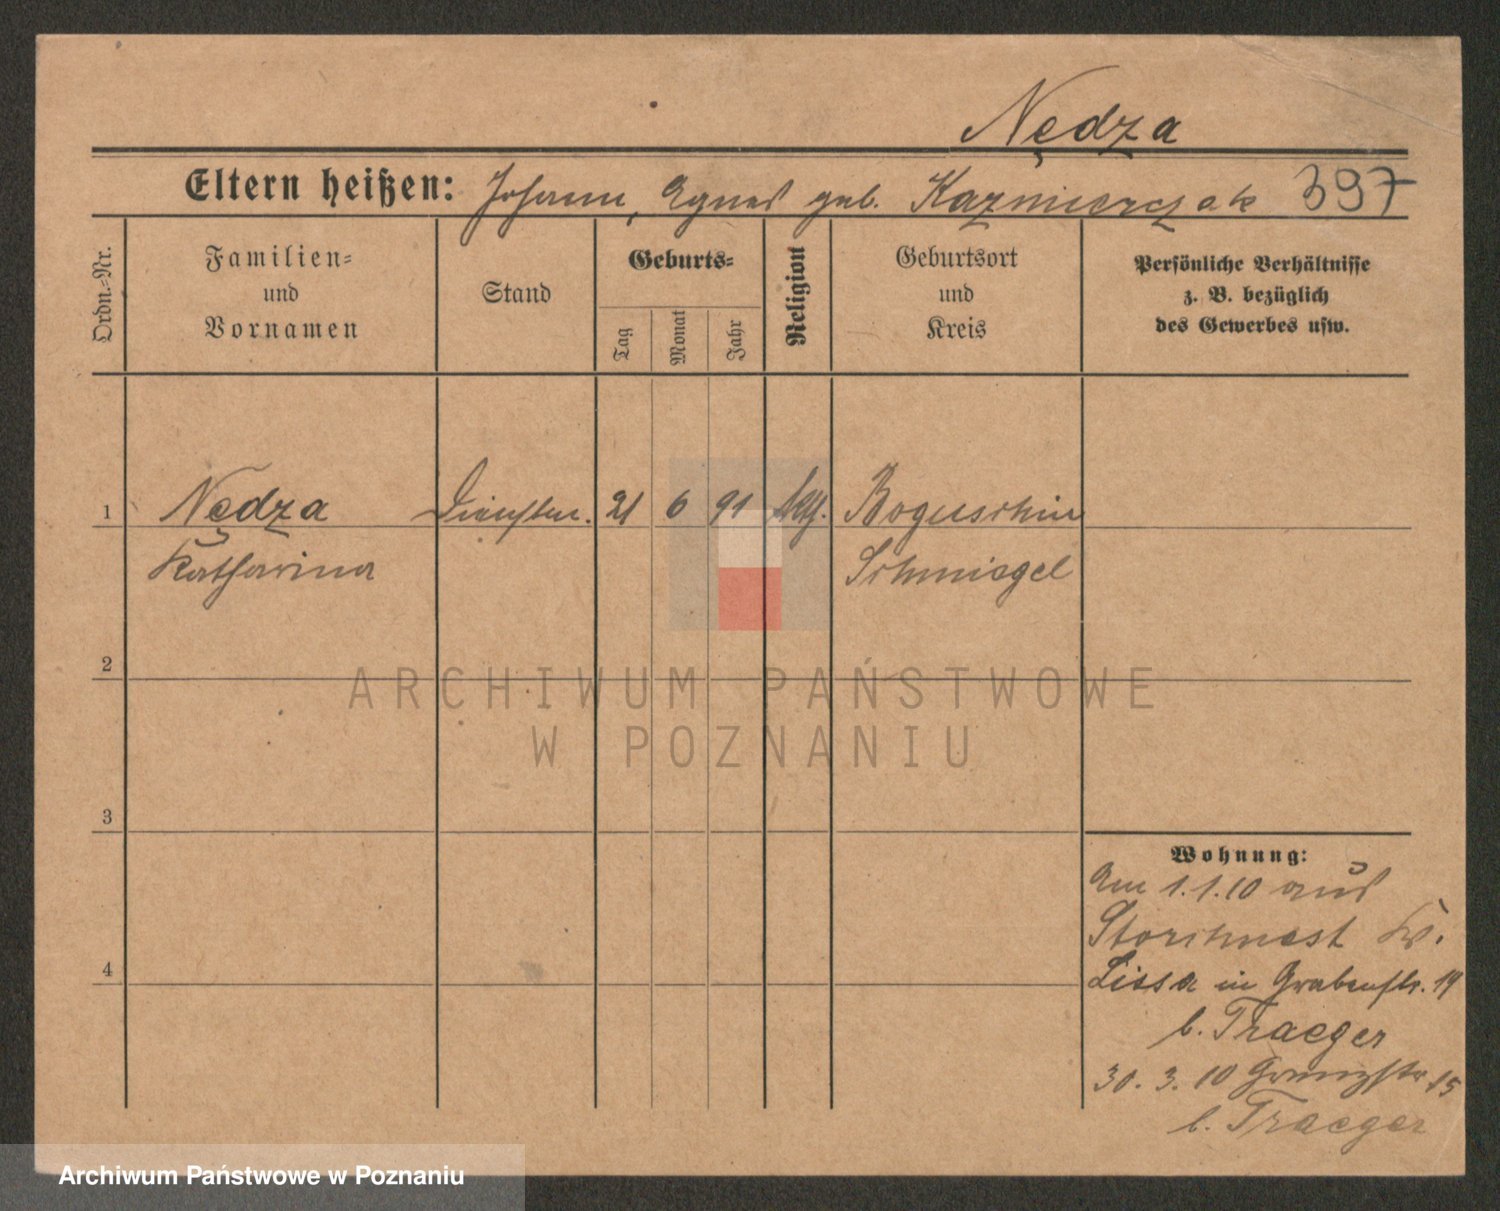 Nędza
Eltern heißen: Johann, Agnes geb. Kazmierczak 397
Ordn.-Nr.
Familien-
und
Vornamen
Stand
Geburts-
Tag
Monat
Jahr
Religion
Geburtsort
und
Kreis
Persönliche Verhältnisse
z. B. bezüglich
des Gewerbes usw.
1 Nędza 21 6 91 Boguschin
Katharina Schmiegel
2
ARCHIWUM PAŃSTWOWE
W POZNANIU
3
Wohnung:
Am 1.1.10 aus
Storchnest Kr.
4
Lissa in Grabenstr. 19
b. Traeger
30. 3. 10 Grenzstr 15
b. Traeger
Archiwum Państwowe w Poznaniu